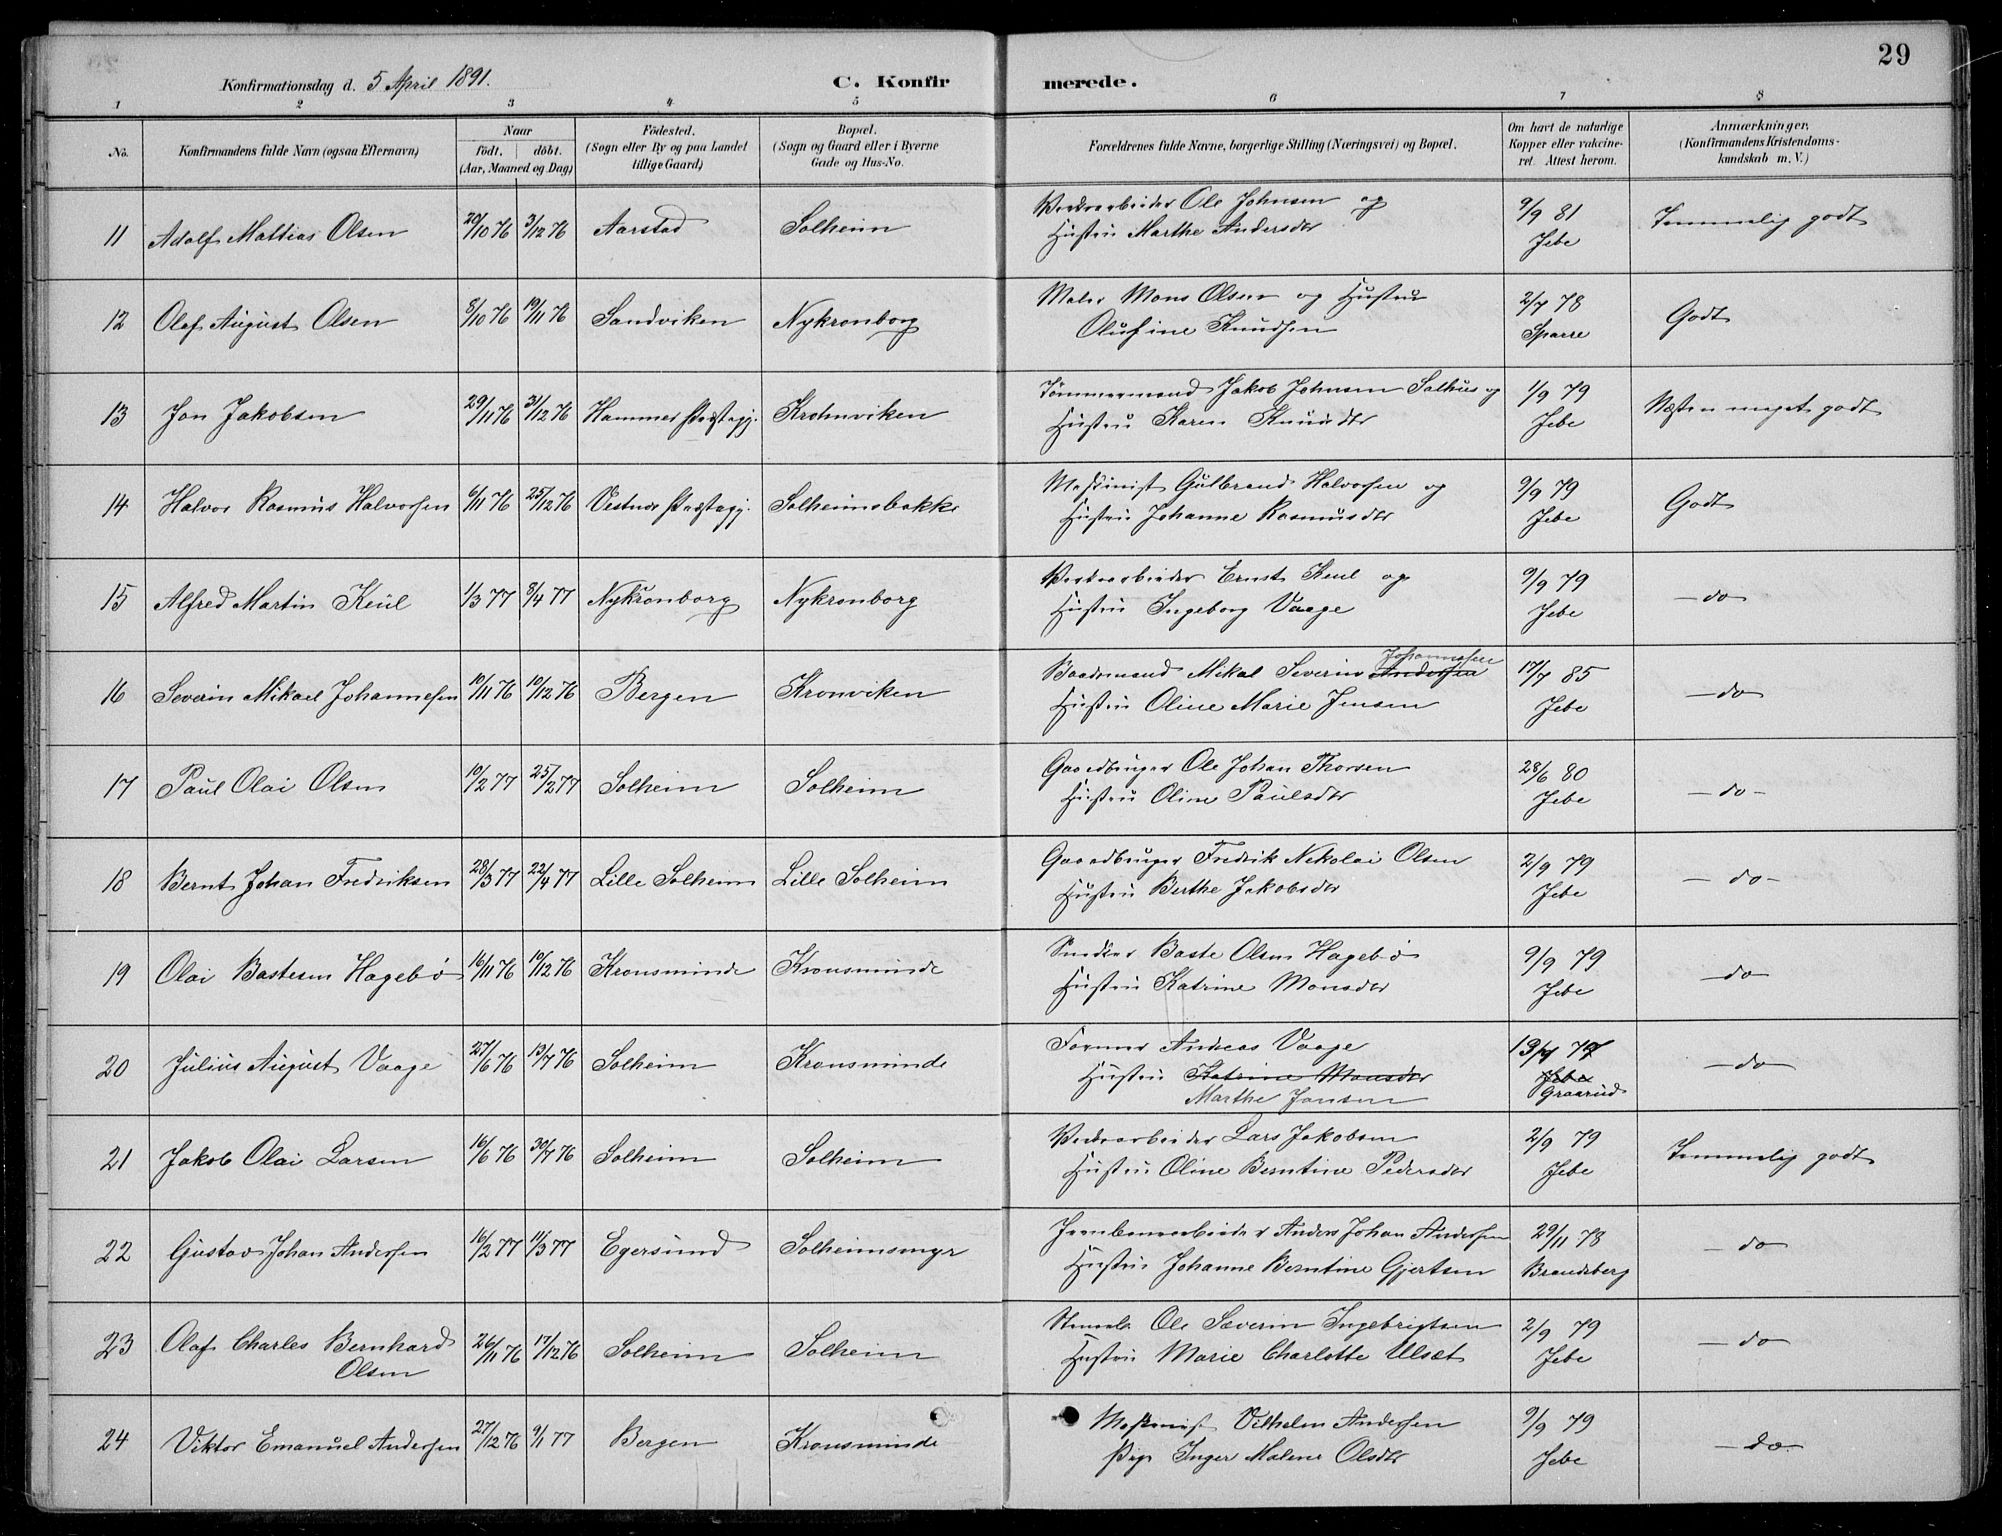 29
Konfirmationsdag d. 5 April 1891.
C. Konfirmerede.
1 2 3 4 5 6 7 8
No.
Konfirmandens fulde Navn (ogsaa Efternavn)
Naar
födt. döbt.
(Aar, Maaned og Dag)
Födested.
(Sogn eller By og paa Landet
tillige Gaard)
Bopæl.
(Sogn og Gaard eller i Byerne
Gade og Hus-No.
Forældrenes fulde Navne, borgerlige Stilling (Næringsvei) og Bopæl.
Om havt de naturlige
Kopper eller vakcine-
ret. Attest herom.
Anmærkninger.
(Konfirmandens Kristendoms-
kundskab m. V.)
11 Adolf Mattias Olsen 29/10 76 3/12 76 Aarstad Solheim Verksarbeider Ole Johnsen og 9/9 81 Temmelig godt
Hustru Marthe Andersdtr Jebe
12 Olaf August Olsen 8/10 76 19/11 76 Sandviken Nykronborg Maler Mons Olsen og Hustru 2/7 78 Godt
Olufine Knudsen Sparre
13 Jon Jakobsen 29/11 76 31/12 76 Hammer Præstegj. Krohnviken Tømmermand Jakob Johnsen Salhus og 1/9 79 Næsten meget godt
Hustru Karen Knudsdtr Jebe
14 Halvor Rasmus Halvorsen 6/11 76 25/12 76 Vestnes Præstegj. Solheimsbakke Maskinist Gulbrand Halvorsen og 9/9 79 Godt
Hustru Johanne Rasmusdtr Jebe
15 Alfred Martin Keul 1/3 77 8/4 77 Nykronborg Nykronborg Verksarbeider Ernst Keul og 9/9 79 — do —
Hustru Ingeborg Vaage Jebe
16 Severin Mikael Johannesen 10/11 76 10/12 76 Bergen Kronviken Baadsmand Mikal Severin Andersen Johannesen 17/7 85 — do
Hustru Oline Marie Jensen Jebe
17 Paul Olai Olsen 10/2 77 25/2 77 Solheim Solheim Gaardbruger Ole Johan Thorsen 28/6 80 — do —
Hustru Oline Paulsdtr Jebe
18 Bernt Johan Fredriksen 28/3 77 22/4 77 Lille Solheim Lille Solheim Gaardbruger Fredrik Nekolai Olsen 2/9 79 — do —
Hustru Berthe Jakobsdtr Jebe
19 Olai Bastesen Hagebø 16/11 76 10/12 76 Kronsminde Kronsminde Snedker Baste Olsen Hagebø 9/9 79 — do —
Hustru Katrine Monsdtr Jebe
20 Julius August Vaage 27/6 76 13/7 76 Solheim Kronsminde Former Andreas Vaage 13/7 77 — do —
Hustru Katrine Monsdtr Jebe
Marthe Jansen Graarud
21 Jakob Olai Larsen 16/6 76 30/7 76 Solheim Solheim Verksarbeider Lars Jakobsen 2/9 79 Temmelig godt
Hustru Oline Berntine Pedersdtr Jebe
22 Gustav Johan Andersen 16/2 77 11/3 77 Egersund Solheimsmyr Jernbanearbeider Anders Johan Andersen 29/11 78 — do —
Hustru Johanne Berntine Gjertsen Brandsberg
23 Olaf Charles Bernhard 26/11 76 17/12 76 Solheim Solheim Ole Severin Ingebrigtsen 2/9 79 — do —
Olsen Hustru Marie Charlotte Ulset Jebe
24 Viktor Emanuel Andersen 27/12 76 9/1 77 Bergen Kronsminde Maskinist Vilhelm Andersen 9/9 79 — do —
Pige Inger Malene Olsdtr Jebe